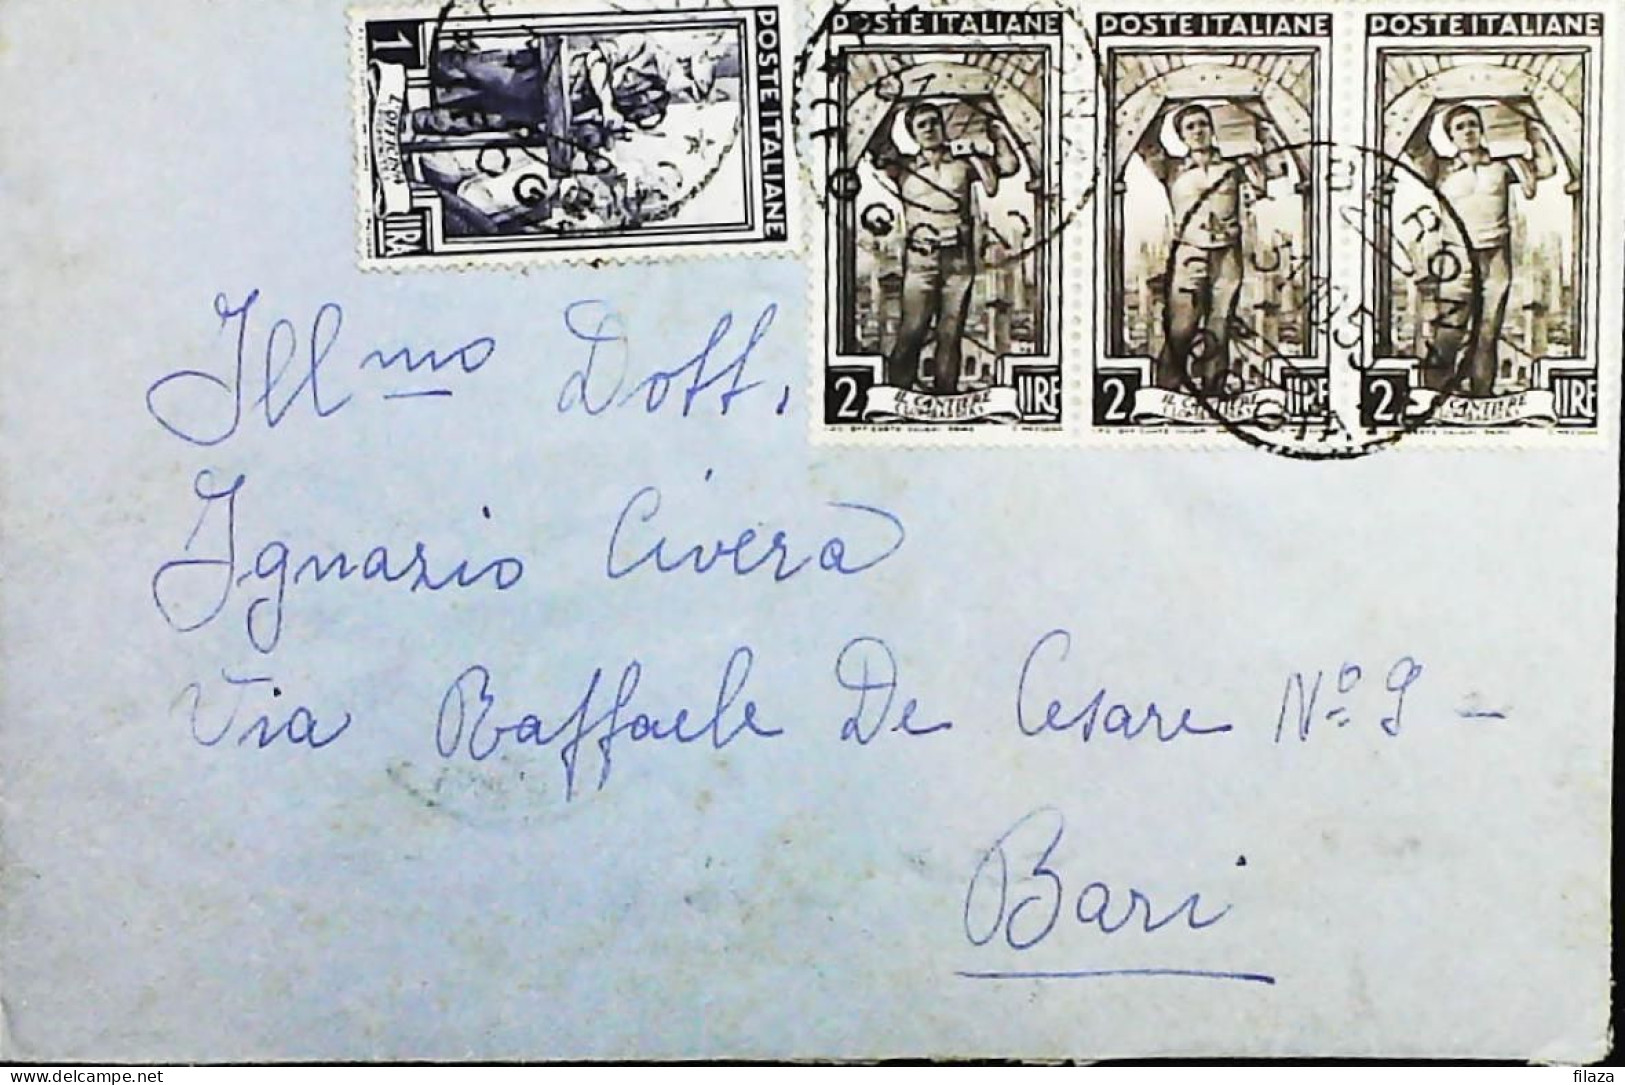 POSTE ITALIANE
1 LIRA
L'OFFICINA
POSTE ITALIANE
2 LIRE
IL CANTIERE
POSTE ITALIANE
2 LIRE
IL CANTIERE
POSTE ITALIANE
2 LIRE
IL CANTIERE
FOGGIA
Ill mo Dott.
Ignazio Civera
Via Raffaele De Cesare N° 9 -
Bari
delcampe.net
filaza